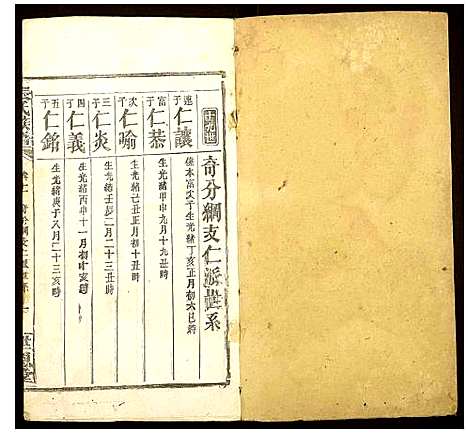 奇分綱支仁派世系
達子 仁讓 係本富次子生光緒丁亥正月初六巳時
富子 仁恭 生光緒甲申九月十九丑時
次子 仁喻 生光緒己丑正月初十丑時
三子 仁炎 生光緒壬辰二月二十三亥時
四子 仁義 生光緒丙申十一月初十亥時
五子 仁銘 生光緒庚子八月二十三亥時